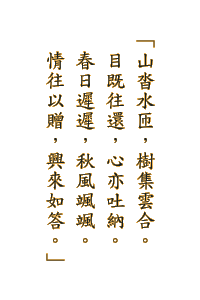 「山沓水匝，樹集雲合。
目既往還，心亦吐納。
春日遲遲，秋風颯颯。
情往以贈，興來如答。」